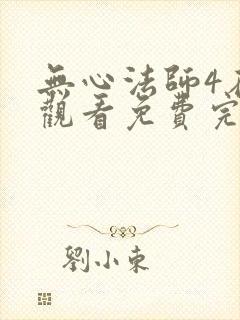 無心法師4在
觀看免費完
劉小東